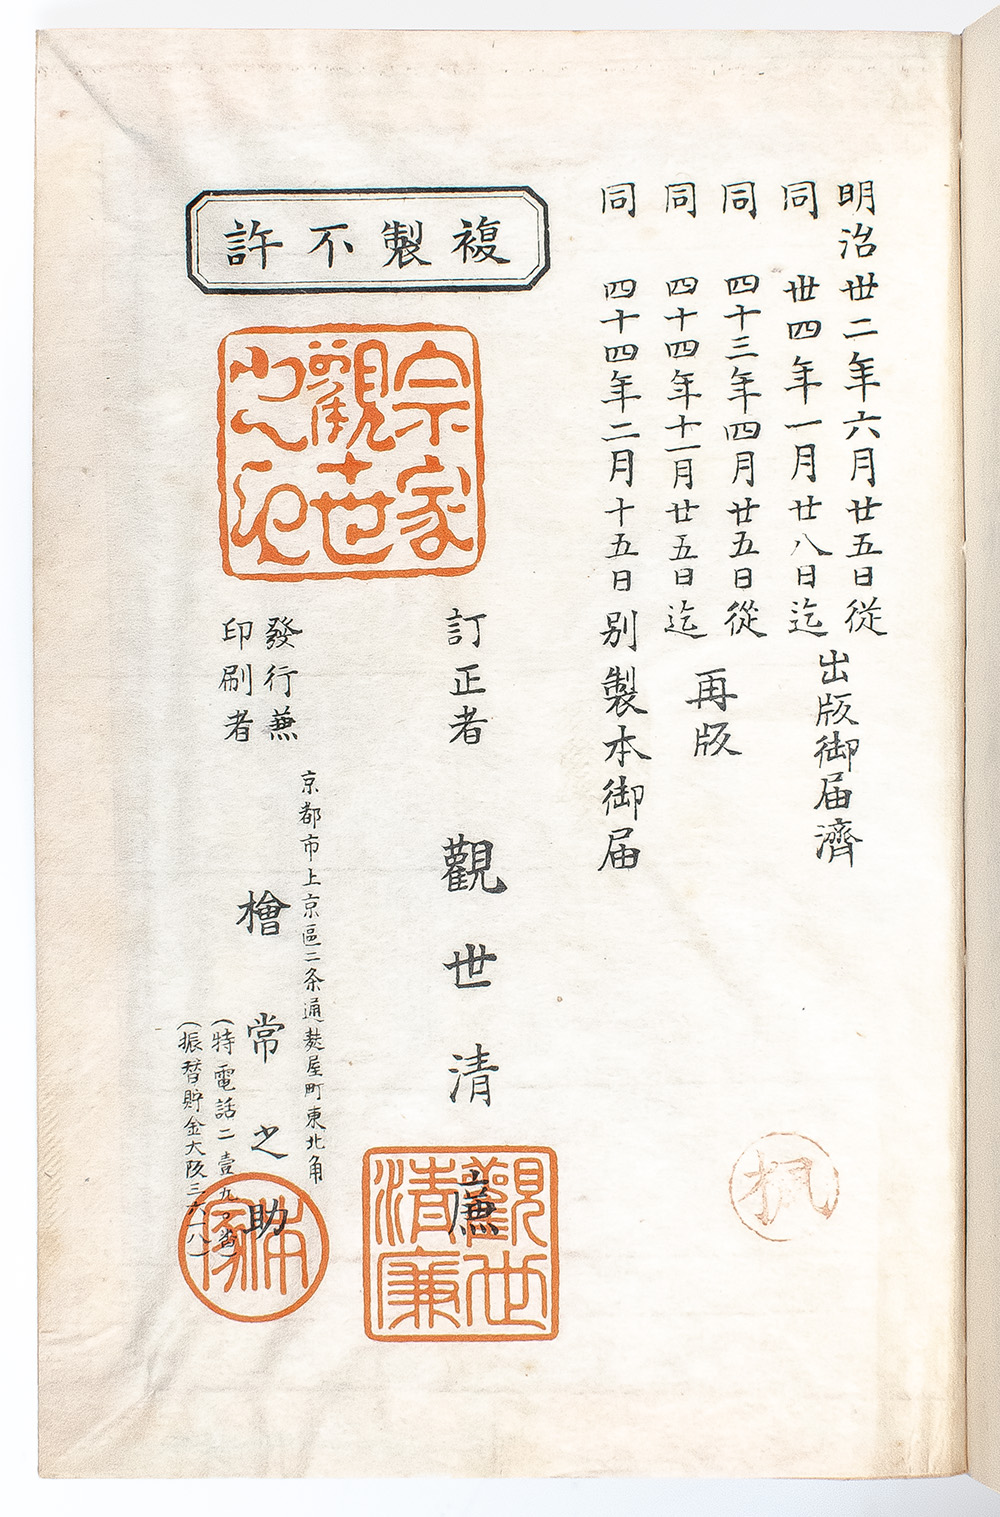 明治丗二年六月廿五日從
同 丗四年一月廿八日迄
出版御届濟
同 四十三年四月廿五日從
同 四十四年十一月廿五日迄
再版
同 四十四年二月十五日別製本御届
複製不許
訂正者 觀世清廉
觀世清廉
發行兼
印刷者
京都市上京區二条通麩屋町東北角
檜常之助
(特電話二壹九〇番)
(振替貯金大阪三六一八)
宗家
觀世